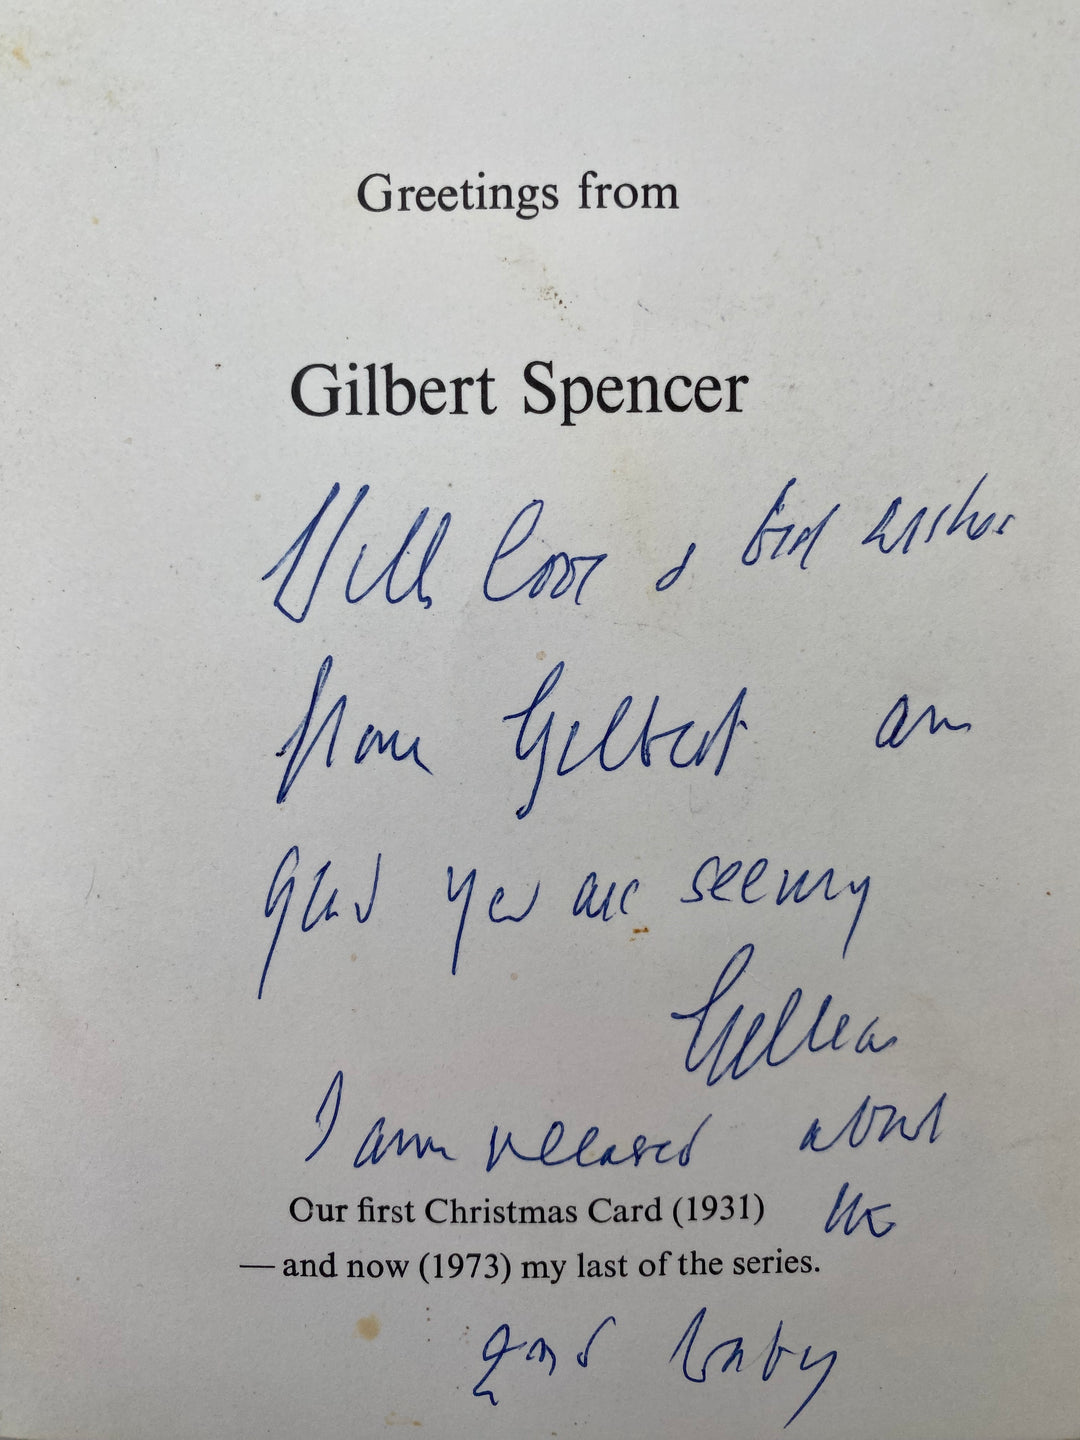 Greetings from
Gilbert Spencer
With love & best wishes
from Gilbert am
glad you are seeing
Gillian
I am pleased about
Our first Christmas Card (1931) the
— and now (1973) my last of the series.
baby